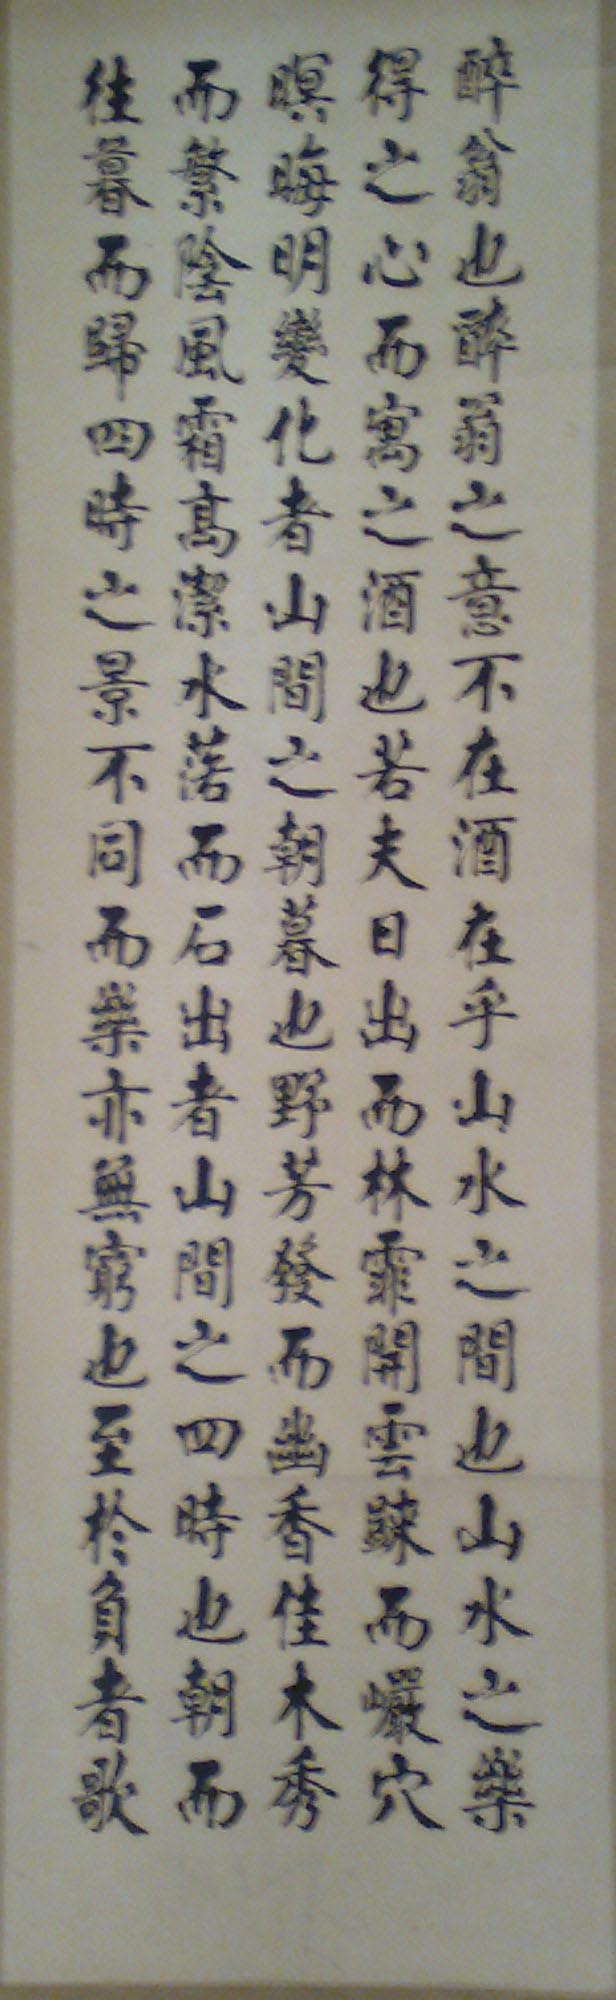 醉翁也醉翁之意不在酒在乎山水之間也山水之樂
得之心而寓之酒也若夫日出而林霏開雲踈而巖穴
暝晦明變化者山間之朝暮也野芳發而幽香佳木秀
而繁陰風霜高潔水落而石出者山間之四時也朝而
往暮而歸四時之景不同而樂亦無窮也至於負者歌